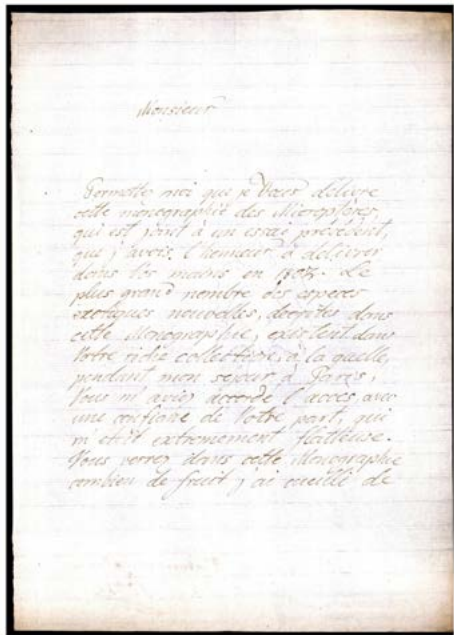 Monsieur
Permettes moi que je Vous délivre
cette monographie des Microptères,
qui est joint à un essai precedent,
que j'avois l'honneur à délivrer
dans Vos mains en
plus grand nombre des especes
exotiques nouvelles, decrites dans
cette Monographie, existent dans
Votre riche collection, à la quelle,
pendant mon sejour à Paris,
Vous m'aviez accordé l'acces avec
une confiance de Votre part, qui
m'étoit extremement flatteuse.
Vous verrez dans cette Monographie
combien de fruit j'ai cueillé de